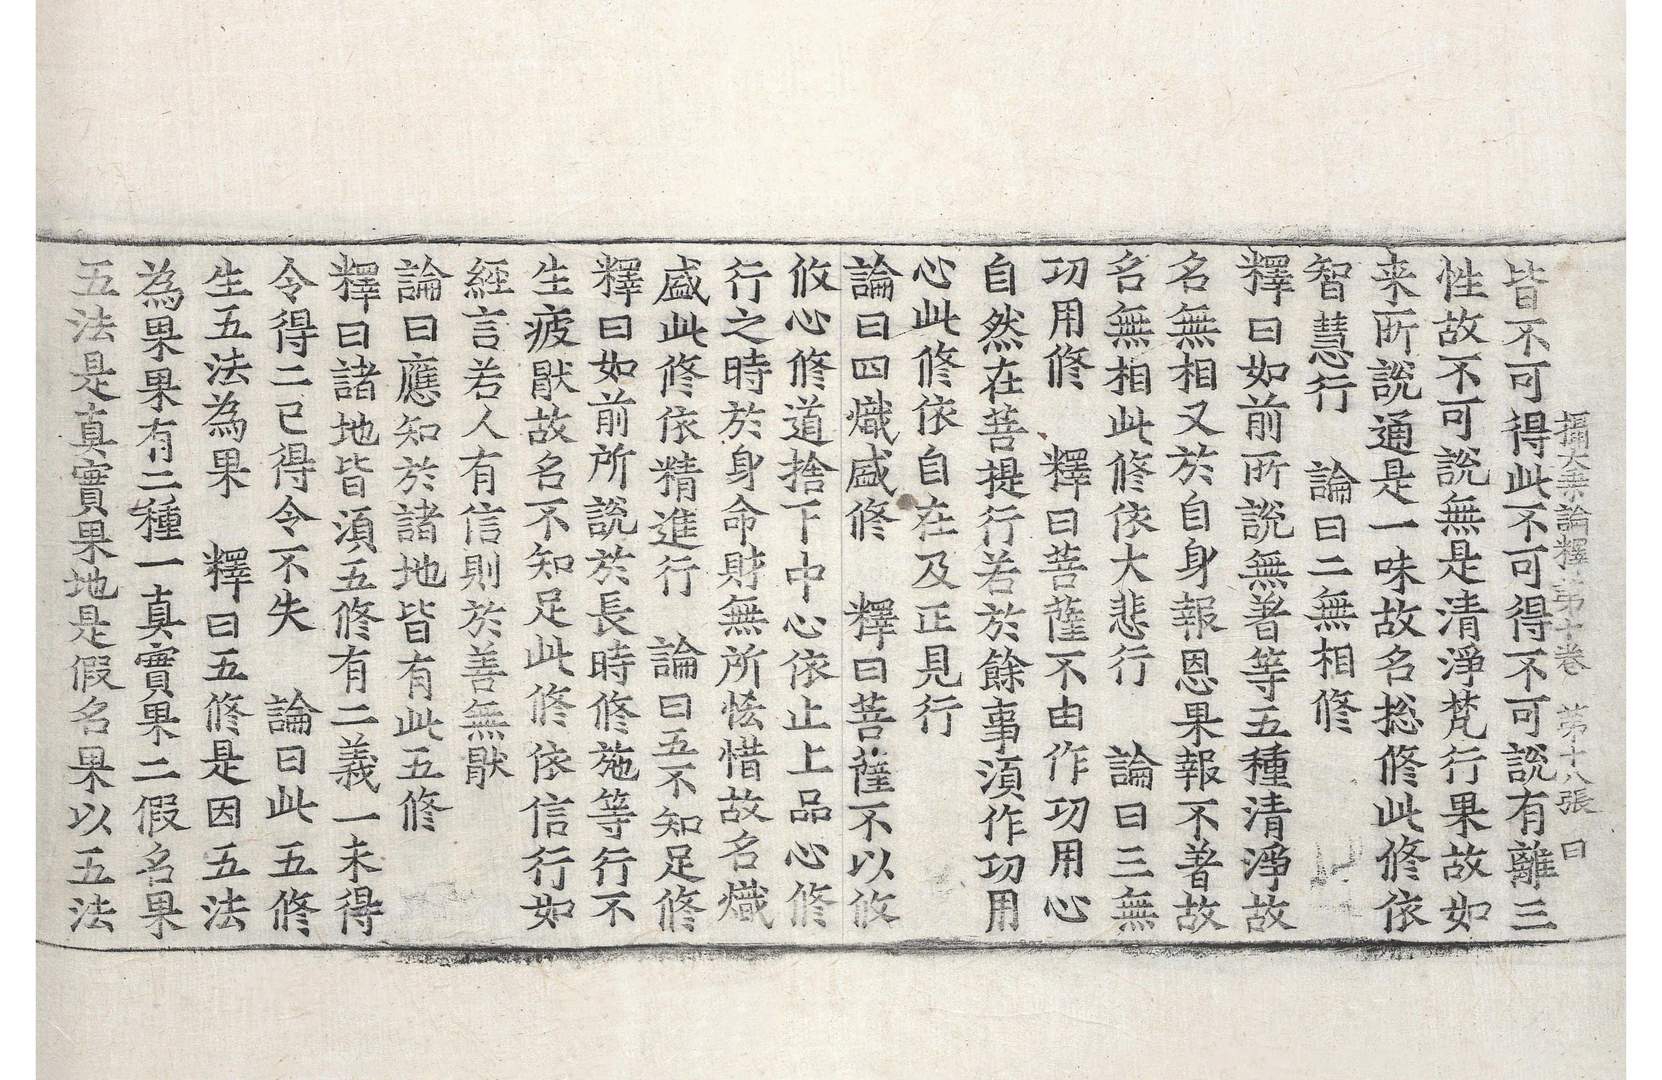 攝大乘論釋苐十卷　苐十八張　曰
皆不可得此不可得不可說有離三
性故不可說無是清淨梵行果故如
来所說通是一味故名捴修此修依
智慧行　論曰二無相修
釋曰如前所說無著等五種清淨故
名無相又於自身報恩果報不著故
名無相此修依大悲行　論曰三無
功用修　釋曰菩薩不由作功用心
自然在菩提行若於餘事湏作功用
心此修依自在及正見行
論曰四熾盛修　釋曰菩薩不以攸
攸心修道捨下中心依止上品心修
行之時於身命財無所恡惜故名熾
盛此修依精進行　論曰五不知足修
釋曰如前所說於長時修施等行不
生疲猒故名不知足此修依信行如
經言若人有信則於善無猒
論曰應知於諸地皆有此五修
釋曰諸地皆湏五修有二義一未得
令得二已得令不失　論曰此五修
生五法為果　釋曰五修是因五法
為果果有二種一真實果二假名果
五法是真實果地是假名果以五法